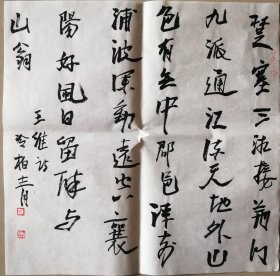 楚塞三湘接荆门
九派通江流天地外山
色有无中郡邑浮前
浦波澜動遠空襄
陽好風日留醉与
山翁
王维诗